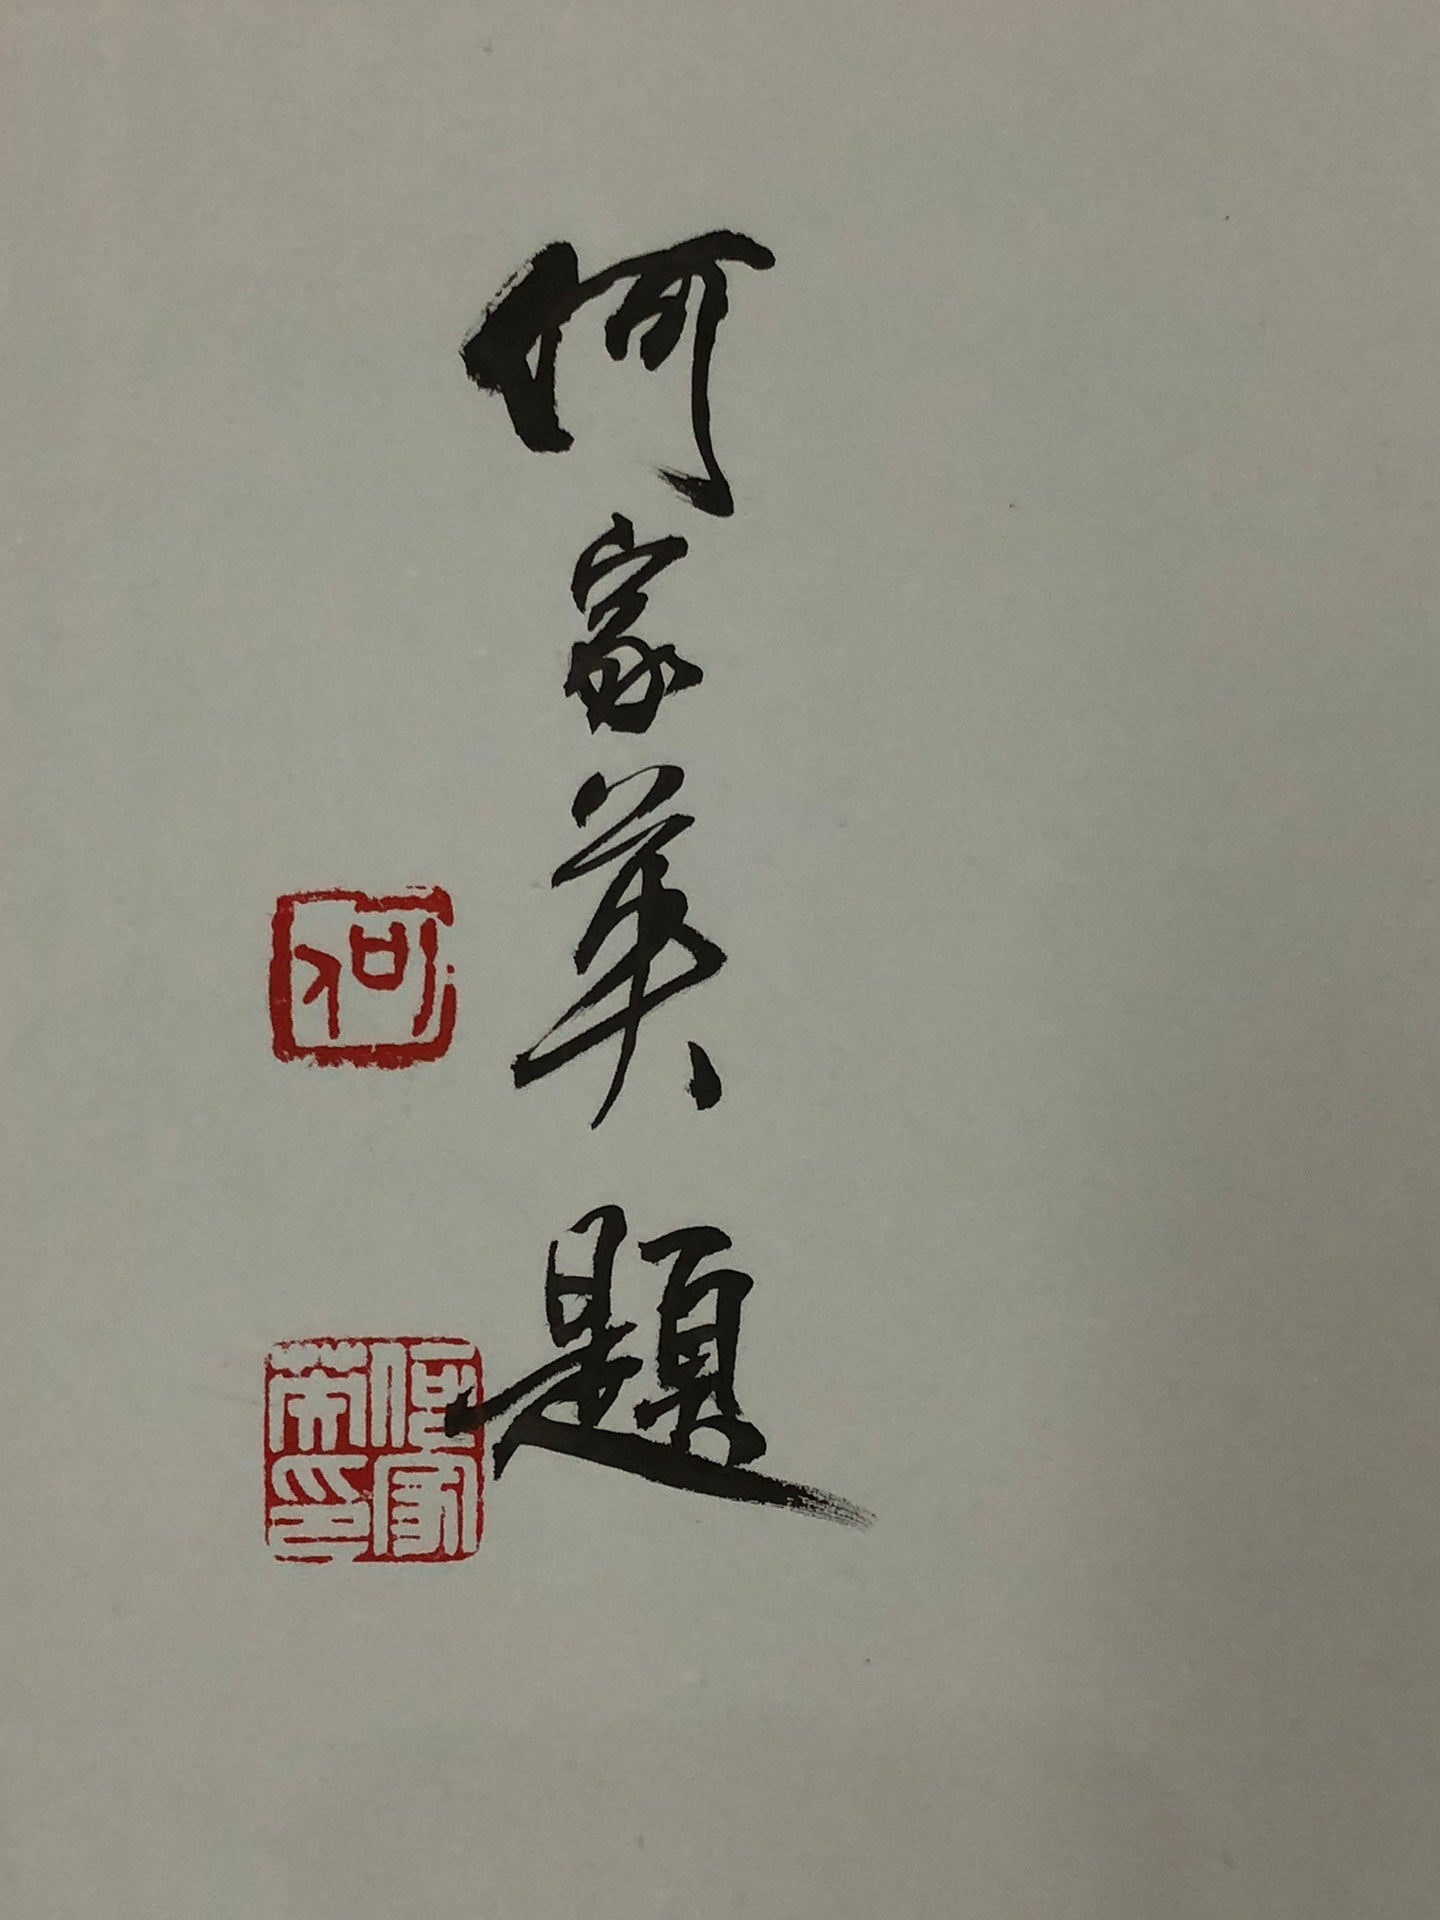 何家英 題
何
何家英印